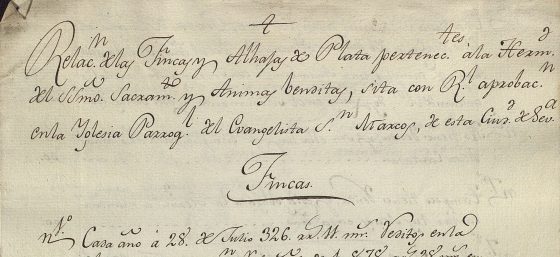 Relac.n de las Fincas y Alhajas de Plata pertenec.tes a la Herm.d
del SSmo. Sacram.to y Animas benditas, sita con R.l aprobac.n
en la Yglesia Parroq.l del Evangelista S.n Marcos, de esta Ciu.d de Sev.a
Fincas.
n.1o. Cada año á 28. de Julio 326. rr. 11. mr. Reditos en la